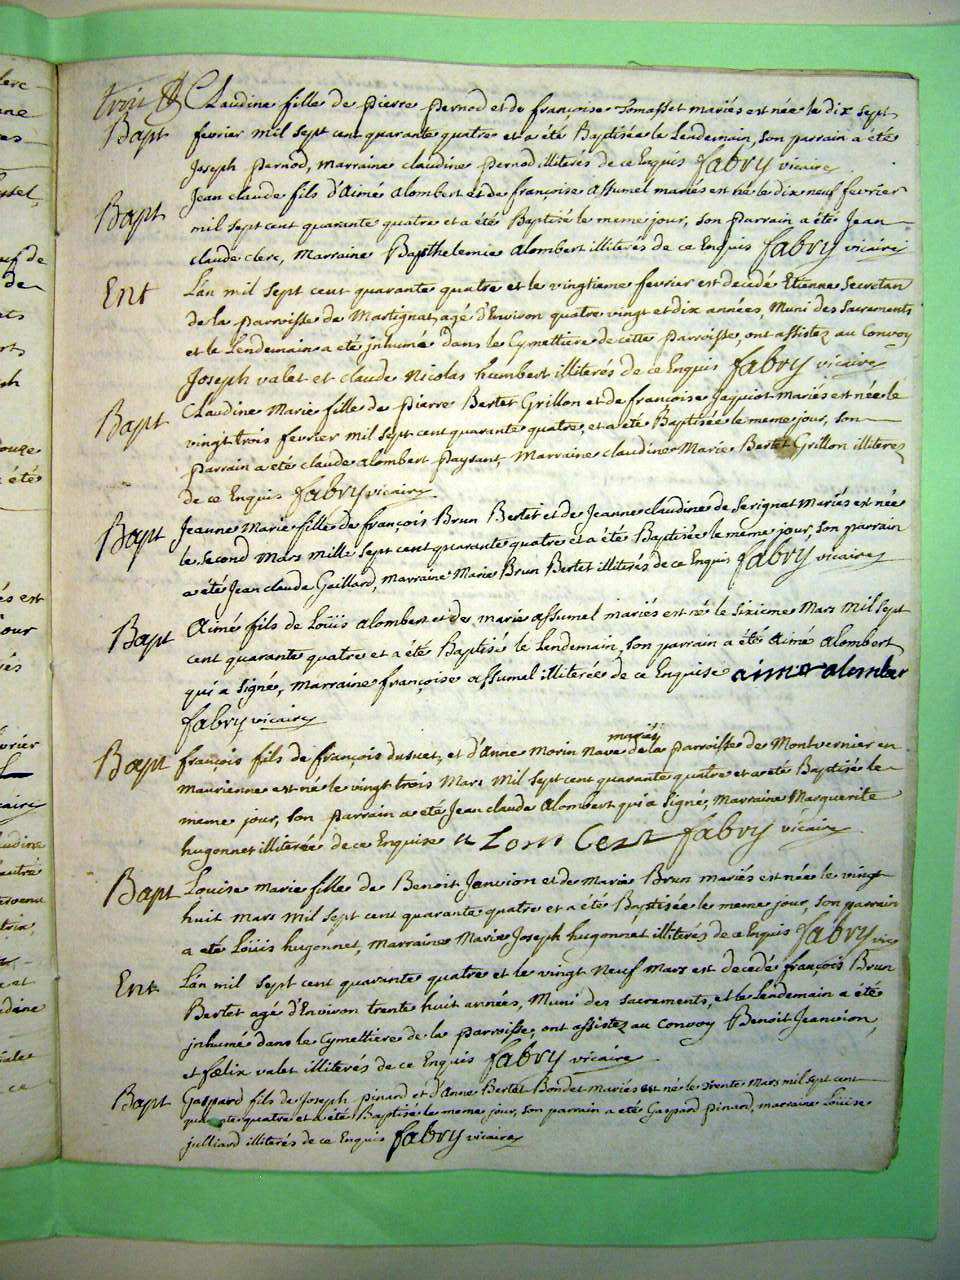 trois
Claudine fille de pierre pernod et de françoise Tomasset mariés est née le dix sept
Bapt fevrier mil sept cent quarante quatre et a été Baptisée le Lendemain, son parain a été
Joseph pernod, marraine claudine pernod illiterés de ce Enquis fabry vicaire
Jean claude fils d'Aimé alombert et de françoise assumel mariés est né le dix neuf fevrier
Bapt mil sept cent quarante quatre et a été Baptisé le meme jour, son parrain a été Jean
claude clerc, Marraine Bapthelemie alombert illiterés de ce Enquis fabry vicaire
Ent L'an mil sept cent quarante quatre et le vingtiame fevrier est decedé Etienne Secretan
de la parroisse de Martignat agé d'Environ quatre vingt et dix années, Muni des Sacraments
et le Lendemain a été jnhumé dans le Cymettiere de cette parroisse, ont assistez au Convoy
Joseph valet et claude Nicolas humbert illiterés de ce Enquis fabry vicaire
Bapt Claudine Marie fille de pierre Bertet Grillon et de françoise Jaquiot mariés est née le
vingt trois fevrier mil sept cent quarante quatre, et a été Baptisée le meme jour, son
parrain a été claude alombert paysant, Marraine claudine Marie Bertet Grillon illiterez
de ce Enquis fabry vicaire
Bapt Jeanne Marie fille de françois Brun Bertet et de Jeanne claudine de Serignat Mariés est née
le second Mars mille sept cent quarante quatre et a été Baptisée le meme jour, son parrain
a été Jean claude Gaillard, marraine Marie Brun Bertet illiterés de ce Enquis fabry vicaire
Bapt Aimé fils de Loüis alombert et de marie assumel mariés est né le sixieme Mars mil sept
cent quarante quatre et a été Baptisé le Lendemain, son parrain a été Aimé alombert
qui a signé, marraine françoise assumel illiterée de ce Enquise aime alomber
fabry vicaire
mariés
Bapt françois fils de françois dusuet, et d'Anne morin Nave de la parroisse de Montvernier en
maurienne est né le vingt trois Mars mil sept cent quarante quatre et a été Baptisé le
meme jour, son parrain a été Jean claude alombert qui a signé, marraine Marguerite
hugonnet illiterée de ce Enquise fabry vicaire
Bapt Louise marie fille de Benoit Janvion et de Marie Brun mariés est née le vingt
huit mars mil sept cent quarante quatre et a été Baptisée le meme jour, son parrain
a été Loüis hugonnet, marraine Marie Joseph hugonnet illiterés de ce Enquis fabry vice
Ent L'an mil sept cent quarante quatre et le vingt Neuf mars est decedé françois Brun
Bertet agé d'Environ trente huit années, Muni des sacrements, et le Lendemain a été
jnhumé dans le Cymettiere de la parroisse, ont assistez au Convoy Benoit Jeanvion,
et fœlix valet illiterés de ce Enquis fabry vicaire
Bapt Gaspard fils de Joseph pinard et d'Anne Bertet Bondet mariés est né le trente Mars mil sept cent
quarante quatre et a été Baptisé le meme jour, son parrain a été Gaspard pinard, marraine Louise
julliard illiterés de ce Enquis fabry vicaire